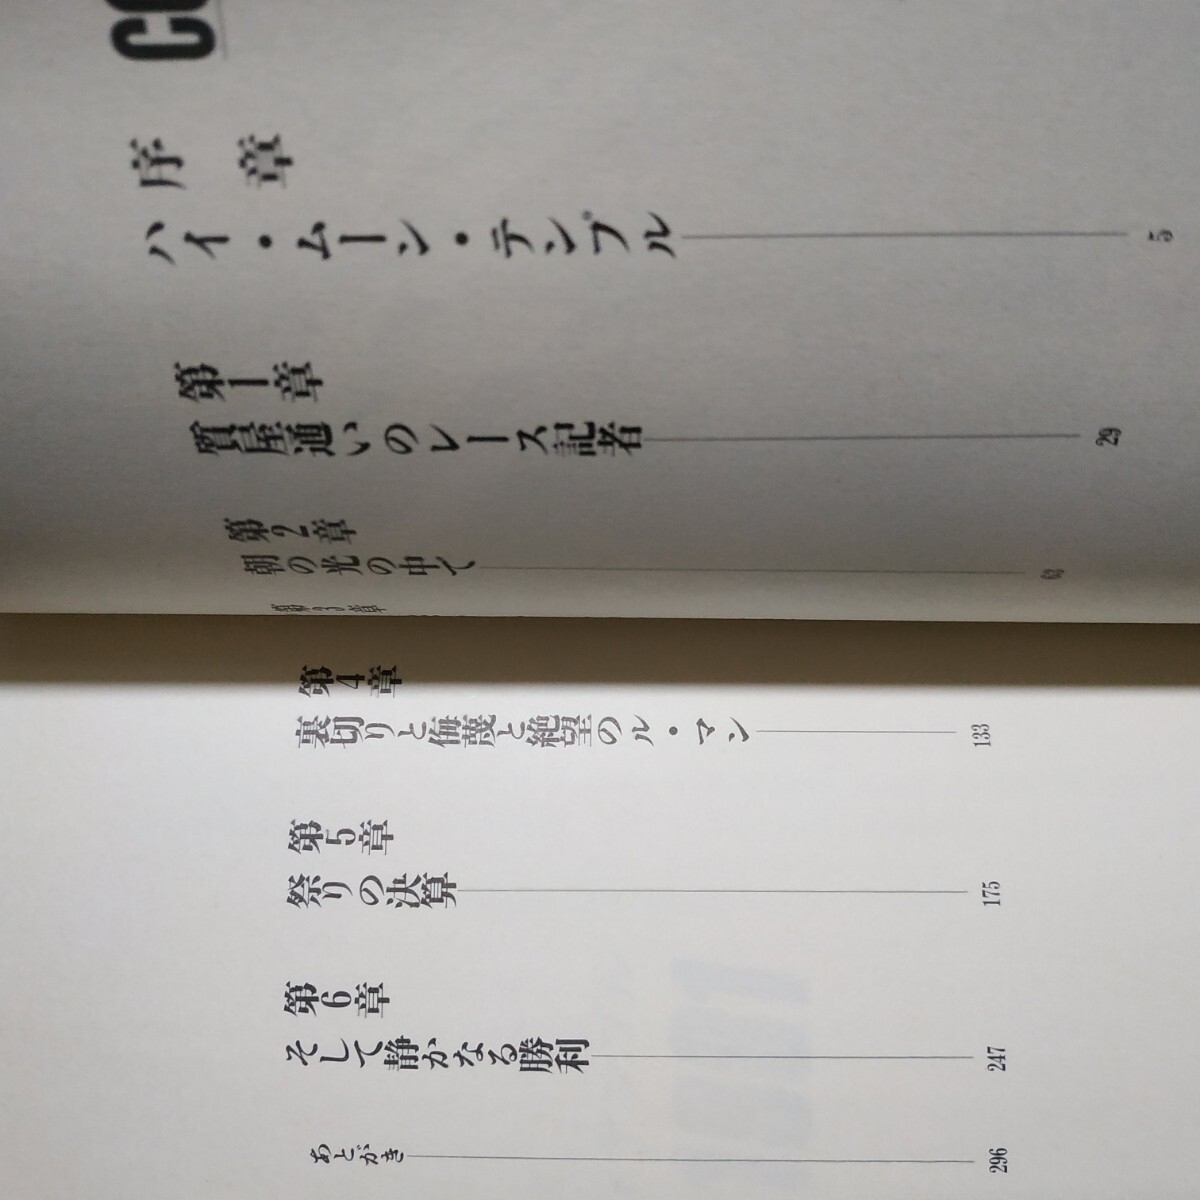 序章
ハイ・ムーン・テンプル 5
第1章
質屋通いのレース記者 29
第2章
朝の光の中で 63
第3章
第4章
裏切りと侮蔑と絶望のル・マン 133
第5章
祭りの決算 175
第6章
そして静かなる勝利 247
あとがき 296